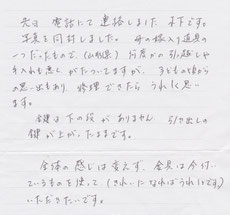 先日 電話にて連絡しました 木下です。
写真を同封しました。母の嫁入り道具の
一つだったもので、(山形県) 何度かの引っ越しや
手入れも悪く がたついてますが、子どもの頃から
の思い出もあり、修理できたら うれしく思い
ます。
鍵は下の段が ありません 引き出しの
鍵が上が、たままです。
全体の感じは変えず、金具は今付い
ているものを使って (きれいになればうれしいです)
いただきたいです。